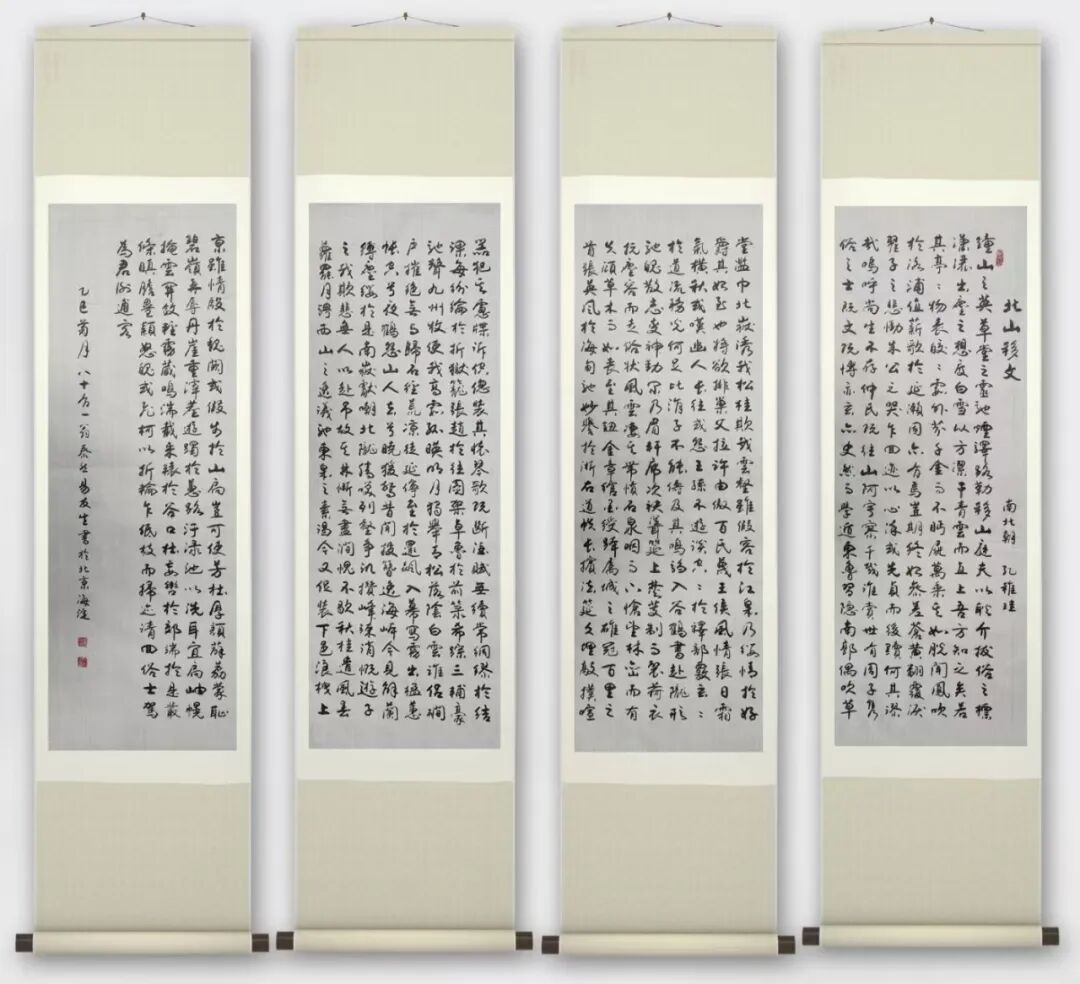 北山移文
南北朝 孔稚珪
鐘山之英草堂之靈馳煙驛路勒移山庭夫以耿介拔俗之標
瀟灑出塵之想度白雪以方潔干青雲而直上吾方知之矣若
其亭亭物表皎皎霞外芥千金而不眄屣萬乘其如脫聞鳳吹
於洛浦值薪歌於延瀨固亦有焉豈期終始參差蒼黃翻覆淚
翟子之悲慟朱公之哭乍迴跡以心染或先貞而後黷何其謬
哉嗚呼尚生不存仲氏既往山阿寂寥千載誰賞世有周子雋
俗之士既文既博亦玄亦史然而學遁東魯習隱南郭偶吹草
堂濫巾北嶽誘我松桂欺我雲壑雖假容於江皋乃纓情於好
爵其始至也將欲排巢父拉許由傲百氏蔑王侯風情張日霜
氣橫秋或嘆幽人長往或怨王孫不遊談空空於釋部覈玄玄
於道流務光何足比涓子不能儔及其鳴騶入谷鶴書赴隴形
馳魄散志變神動爾乃眉軒席次袂聳筵上焚芰製而裂荷衣
抗塵容而走俗狀風雲淒其帶憤石泉咽而下愴望林巒而有
失顧草木而如喪至其鈕金章綰墨綬跨屬城之雄冠百里之
首張英風於海甸馳妙譽於浙右道帙長擯法筵久埋敲撲喧
囂犯其慮牒訴倥傯裝其懷琴歌既斷酒賦無續常綢繆於結
課每紛綸於折獄籠張趙於往圖架卓魯於前籙希蹤三輔豪
馳聲九州牧使我高霞孤映明月獨舉青松落陰白雲誰侶磵
戶摧絕無與歸石徑荒涼徒延佇至於還飆入幕寫霧出楹蕙
帳空兮夜鶴怨山人去兮曉猿驚昔聞投簪逸海岸今見解蘭
縛塵纓於是南嶽獻嘲北隴騰笑列壑爭譏攢峰竦誚慨遊子
之我欺悲無人以赴弔故其林慚無盡澗愧不歇秋桂遺風春
蘿罷月騁西山之逸議馳東皋之素謁今又促裝下邑浪栧上
京雖情殷於魏闕或假步於山扃豈可使芳杜厚顏薜荔蒙恥
碧嶺再辱丹崖重滓塵遊躅於蕙路汙淥池以洗耳宜扃岫幌
掩雲關斂輕霧藏鳴湍截來轅於谷口杜妄轡於郊端於是叢
條瞋膽疊穎怒魄或飛柯以折輪乍低枝而掃跡請迴俗士駕
為君謝逋客
乙巳荷月八十又一翁泰然易友生書於北京海淀